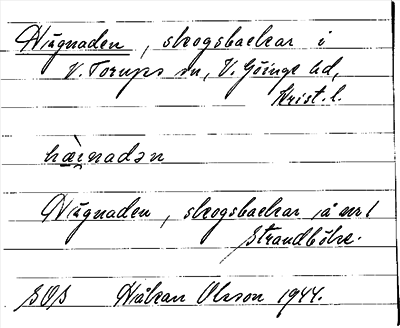 Hägnaden, skogsbackar i
V. Torups sn, V. Göinge hd,
Krist. l.
hæ̀i̯nadən
Hägnaden, skogsbackar å nr 1
Strandböke.
SOS Håkan Olsson 1944.